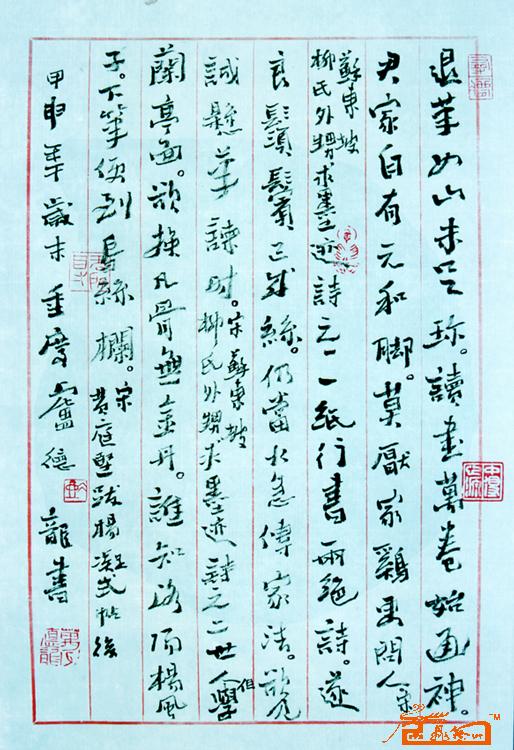 退筆如山未足珍。讀書萬卷始通神。
君家自有元和脚。莫厭家鷄更問人。
蘇東坡
柳氏外甥求墨迹詩之一
一紙行書兩絕詩。遂
良鬚鬢已成絲。何當火急傳家法。欲見
誠懸筆諫時。宋蘇東坡
柳氏外甥求墨迹詩之二世人但學
蘭亭面。欲換凡骨無金丹。誰知洛陽楊風
子。下筆便到烏絲欄。宋黃庭堅跋楊凝式帖後
甲申年歲末重慶盧德龍書